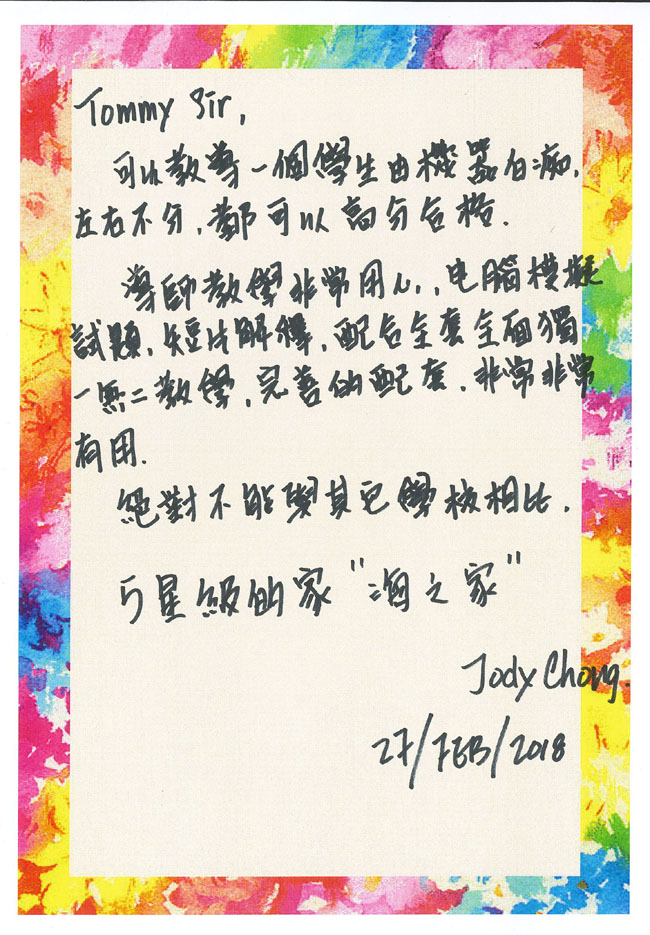 Tommy Sir,
可以教導一個學生由機器白痴,
左右不分,都可以高分合格.
導師教學非常用心,电腦模擬
試題,短片解釋,配合全套全面獨
一無二教學,完善的配套,非常非常
有用.
絕對不能與其它學校相比.
5星級的家"海之家"
Jody Chong.
27/FEB/2018